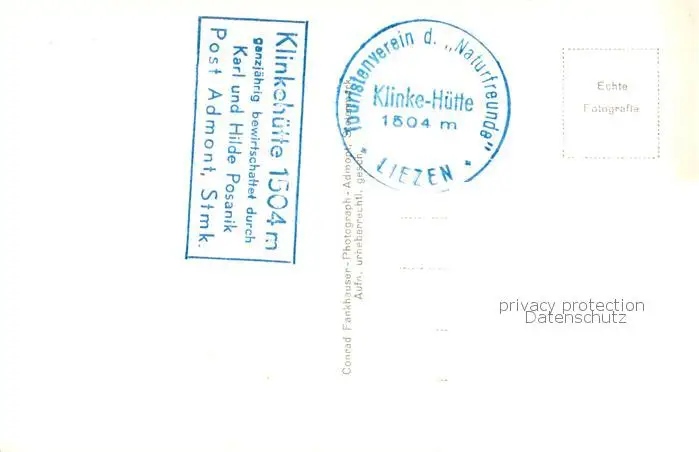 Klinkehütte 1504 m
ganzjährig bewirtschaftet durch
Karl und Hilde Posanik
Post Admont, Stmk.
Touristenverein d. „Naturfreunde"
Klinke-Hütte
1504 m
* LIEZEN *
Conrad Fankhauser - Photograph - Admont, Steiermark
Aufn. urheberrechtl. gesch.
Echte
Fotografie
privacy protection
Datenschutz